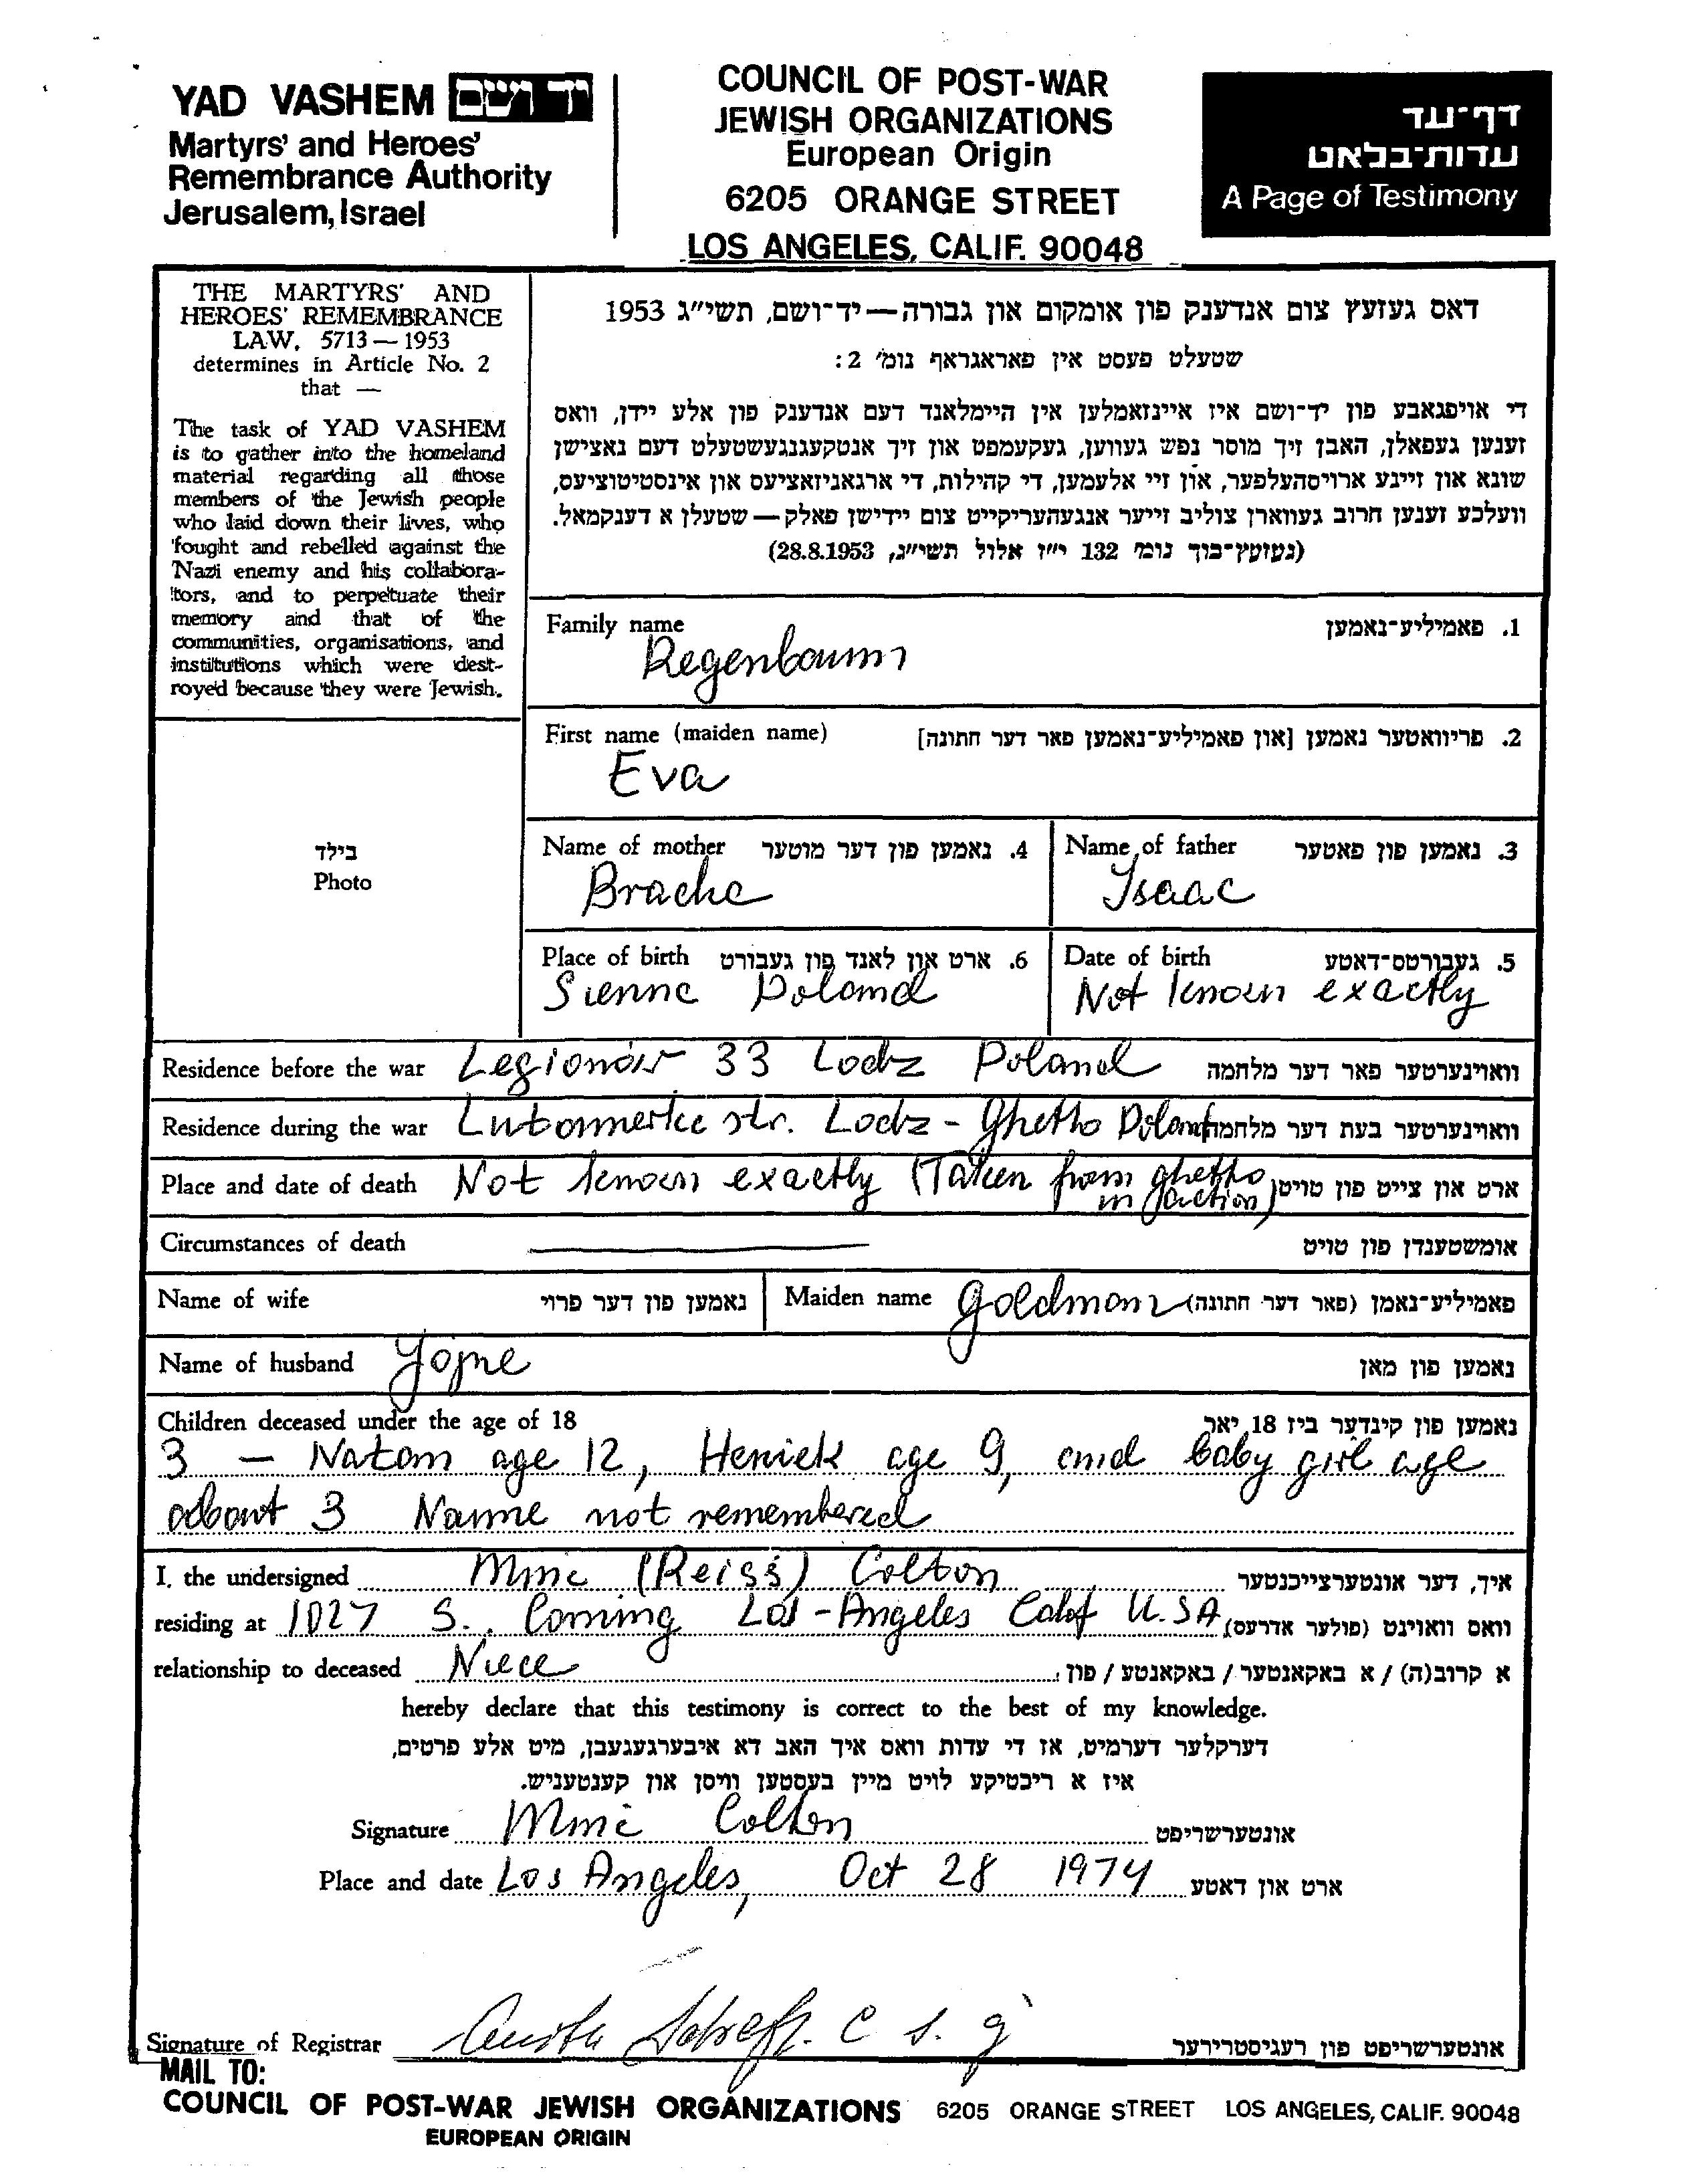 YAD VASHEM יד ושם
Martyrs' and Heroes'
Remembrance Authority
Jerusalem, Israel
COUNCIL OF POST-WAR
JEWISH ORGANIZATIONS
European Origin
6205 ORANGE STREET
LOS ANGELES, CALIF. 90048
דף-עד
עדות-בלאט
A Page of Testimony
THE MARTYRS' AND
HEROES' REMEMBRANCE
LAW, 5713 — 1953
determines in Article No. 2
that —
The task of YAD VASHEM
is to gather into the homeland
material regarding all those
members of the Jewish people
who laid down their lives, who
fought and rebelled against the
Nazi enemy and his collabora-
tors, and to perpetuate their
memory and that of the
communities, organisations, and
institutions which were dest-
royed because they were Jewish.
דאס געזעץ צום אנדענק פון אומקום און גבורה — יד-ושם, תשי״ג 1953
שטעלט פעסט אין פאראגראף נומ׳ 2:
די אויפגאבע פון יד-ושם איז איינזאמלען אין היימלאנד דעם אנדענק פון אלע יידן, וואס
זענען געפאלן, האבן זיך מוסר נפש געווען, געקעמפט און זיך אנטקעגנגעשטעלט דעם נאצישן
שונא און זיינע ארויסהעלפער, און זיי אלעמען, די קהילות, די ארגאניזאציעס און אינסטיטוציעס,
וועלכע זענען חרוב געווארן צוליב זייער אנגעהעריקייט צום יידישן פאלק — שטעלן א דענקמאל.
(געזעץ-בוך נומ׳ 132 י״ז אלול תשי״ג, 28.8.1953)
Family name 1. פאמיליע-נאמען
Regenbaum
First name (maiden name) 2. פריוואטער נאמען [און פאמיליע-נאמען פאר דער חתונה]
Eva
בילד
Photo
Name of mother 4. נאמען פון דער מוטער Name of father 3. נאמען פון פאטער
Brache Isaac
Place of birth 6. ארט און לאנד פון געבורט Date of birth 5. געבורטס-דאטע
Sienne Poland Not known exactly
Residence before the war Legionów 33 Lodz Poland וואוינערטער פאר דער מלחמה
Residence during the war str. Lodz - Ghetto Poland וואוינערטער בעת דער מלחמה
Place and date of death Not known exactly (Taken from ghetto in action) ארט און צייט פון טויט
Circumstances of death אומשטענדן פון טויט
Name of wife נאמען פון דער פרוי Maiden name Goldman פאמיליע-נאמן (פאר דער חתונה)
Name of husband Yojne נאמען פון מאן
Children deceased under the age of 18 נאמען פון קינדער ביז 18 יאר
3 — Natan age 12, Heniek age 9, and baby girl age
about 3 Name not remembered
I, the undersigned (Reiss) Colton איך, דער אונטערצייכנטער
residing at 1027 S. Corning Los-Angeles Calif U.S.A. וואס וואוינט (פולער אדרעס)
relationship to deceased Niece א קרוב(ה) / א באקאנטער / באקאנטע / פון
hereby declare that this testimony is correct to the best of my knowledge.
דערקלער דערמיט, אז די עדות וואס איך האב דא איבערגעגעבן, מיט אלע פרטים,
איז א ריכטיקע לויט מיין בעסטען וויסן און קענטעניש.
Signature Colton אונטערשריפט
Place and date Los Angeles, Oct 28 1974 ארט און דאטע
Signature of Registrar אונטערשריפט פון רעגיסטרירער
MAIL TO:
COUNCIL OF POST-WAR JEWISH ORGANIZATIONS 6205 ORANGE STREET LOS ANGELES, CALIF. 90048
EUROPEAN ORIGIN